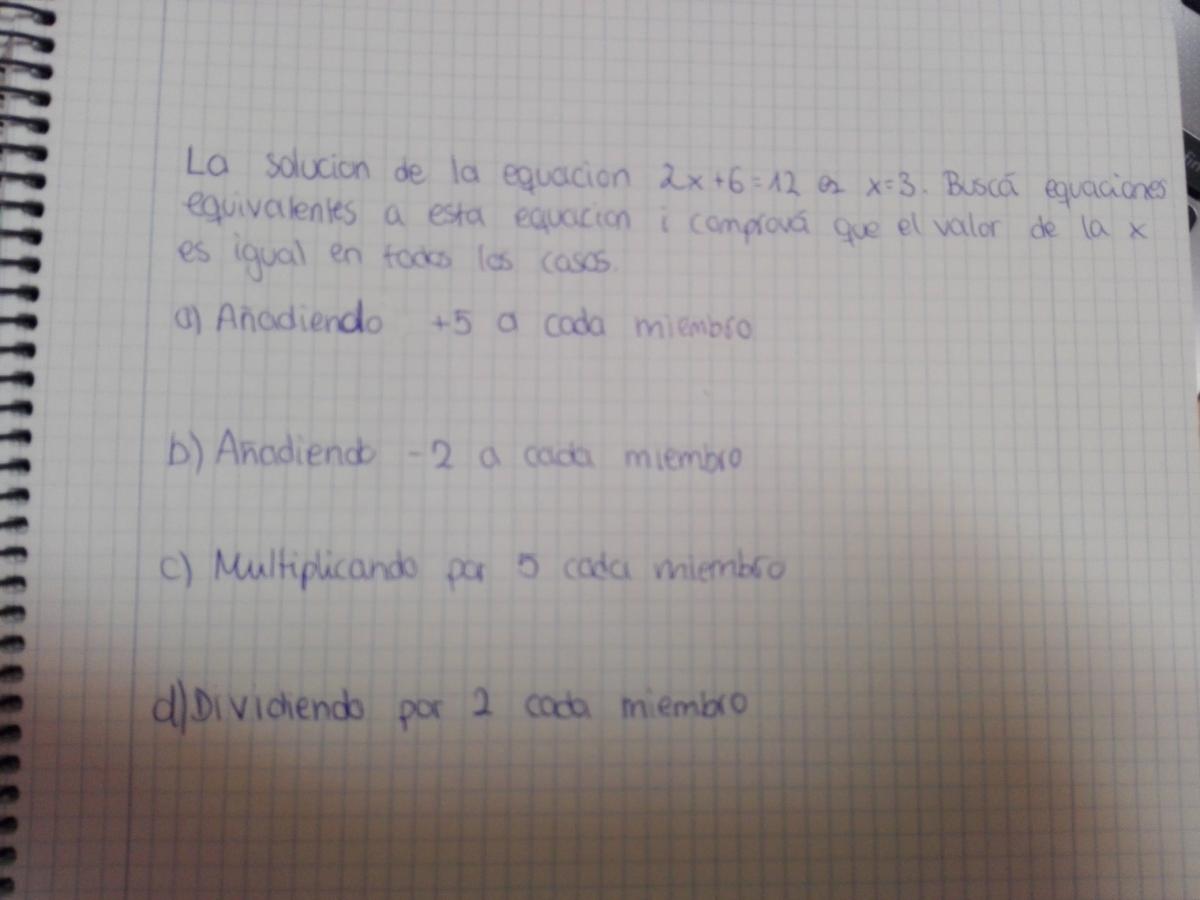 La solucion de la equacion 2x+6=12 es x=3. Buscá equaciones
equivalentes a esta equacion i comprová que el valor de la x
es igual en todos los casos.
a) Añadiendo +5 a cada miembro
b) Añadiendo -2 a cada miembro
c) Multiplicando por 5 cada miembro
d) Dividiendo por 2 cada miembro